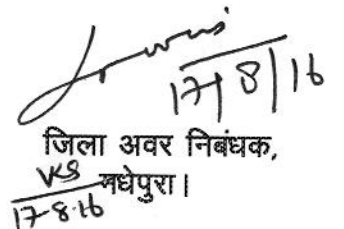 17/8/16
जिला अवर निबंधक,
VKS मधेपुरा।
17-8-16